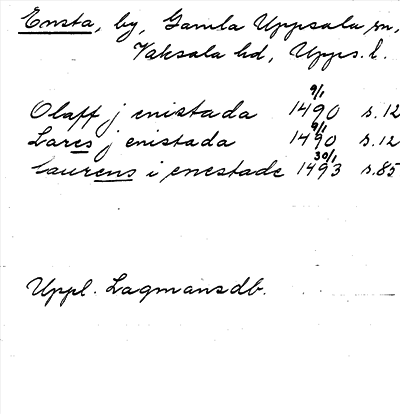 Ensta, by, Gamla Uppsala sn,
Vaksala hd, Upps. l.
Olaff j enistada 9/1 1490 s. 12
Lares j enistada 9/1 1490 s. 12
laurens i enestade 30/1 1493 s. 85
Uppl. Lagmansdb.